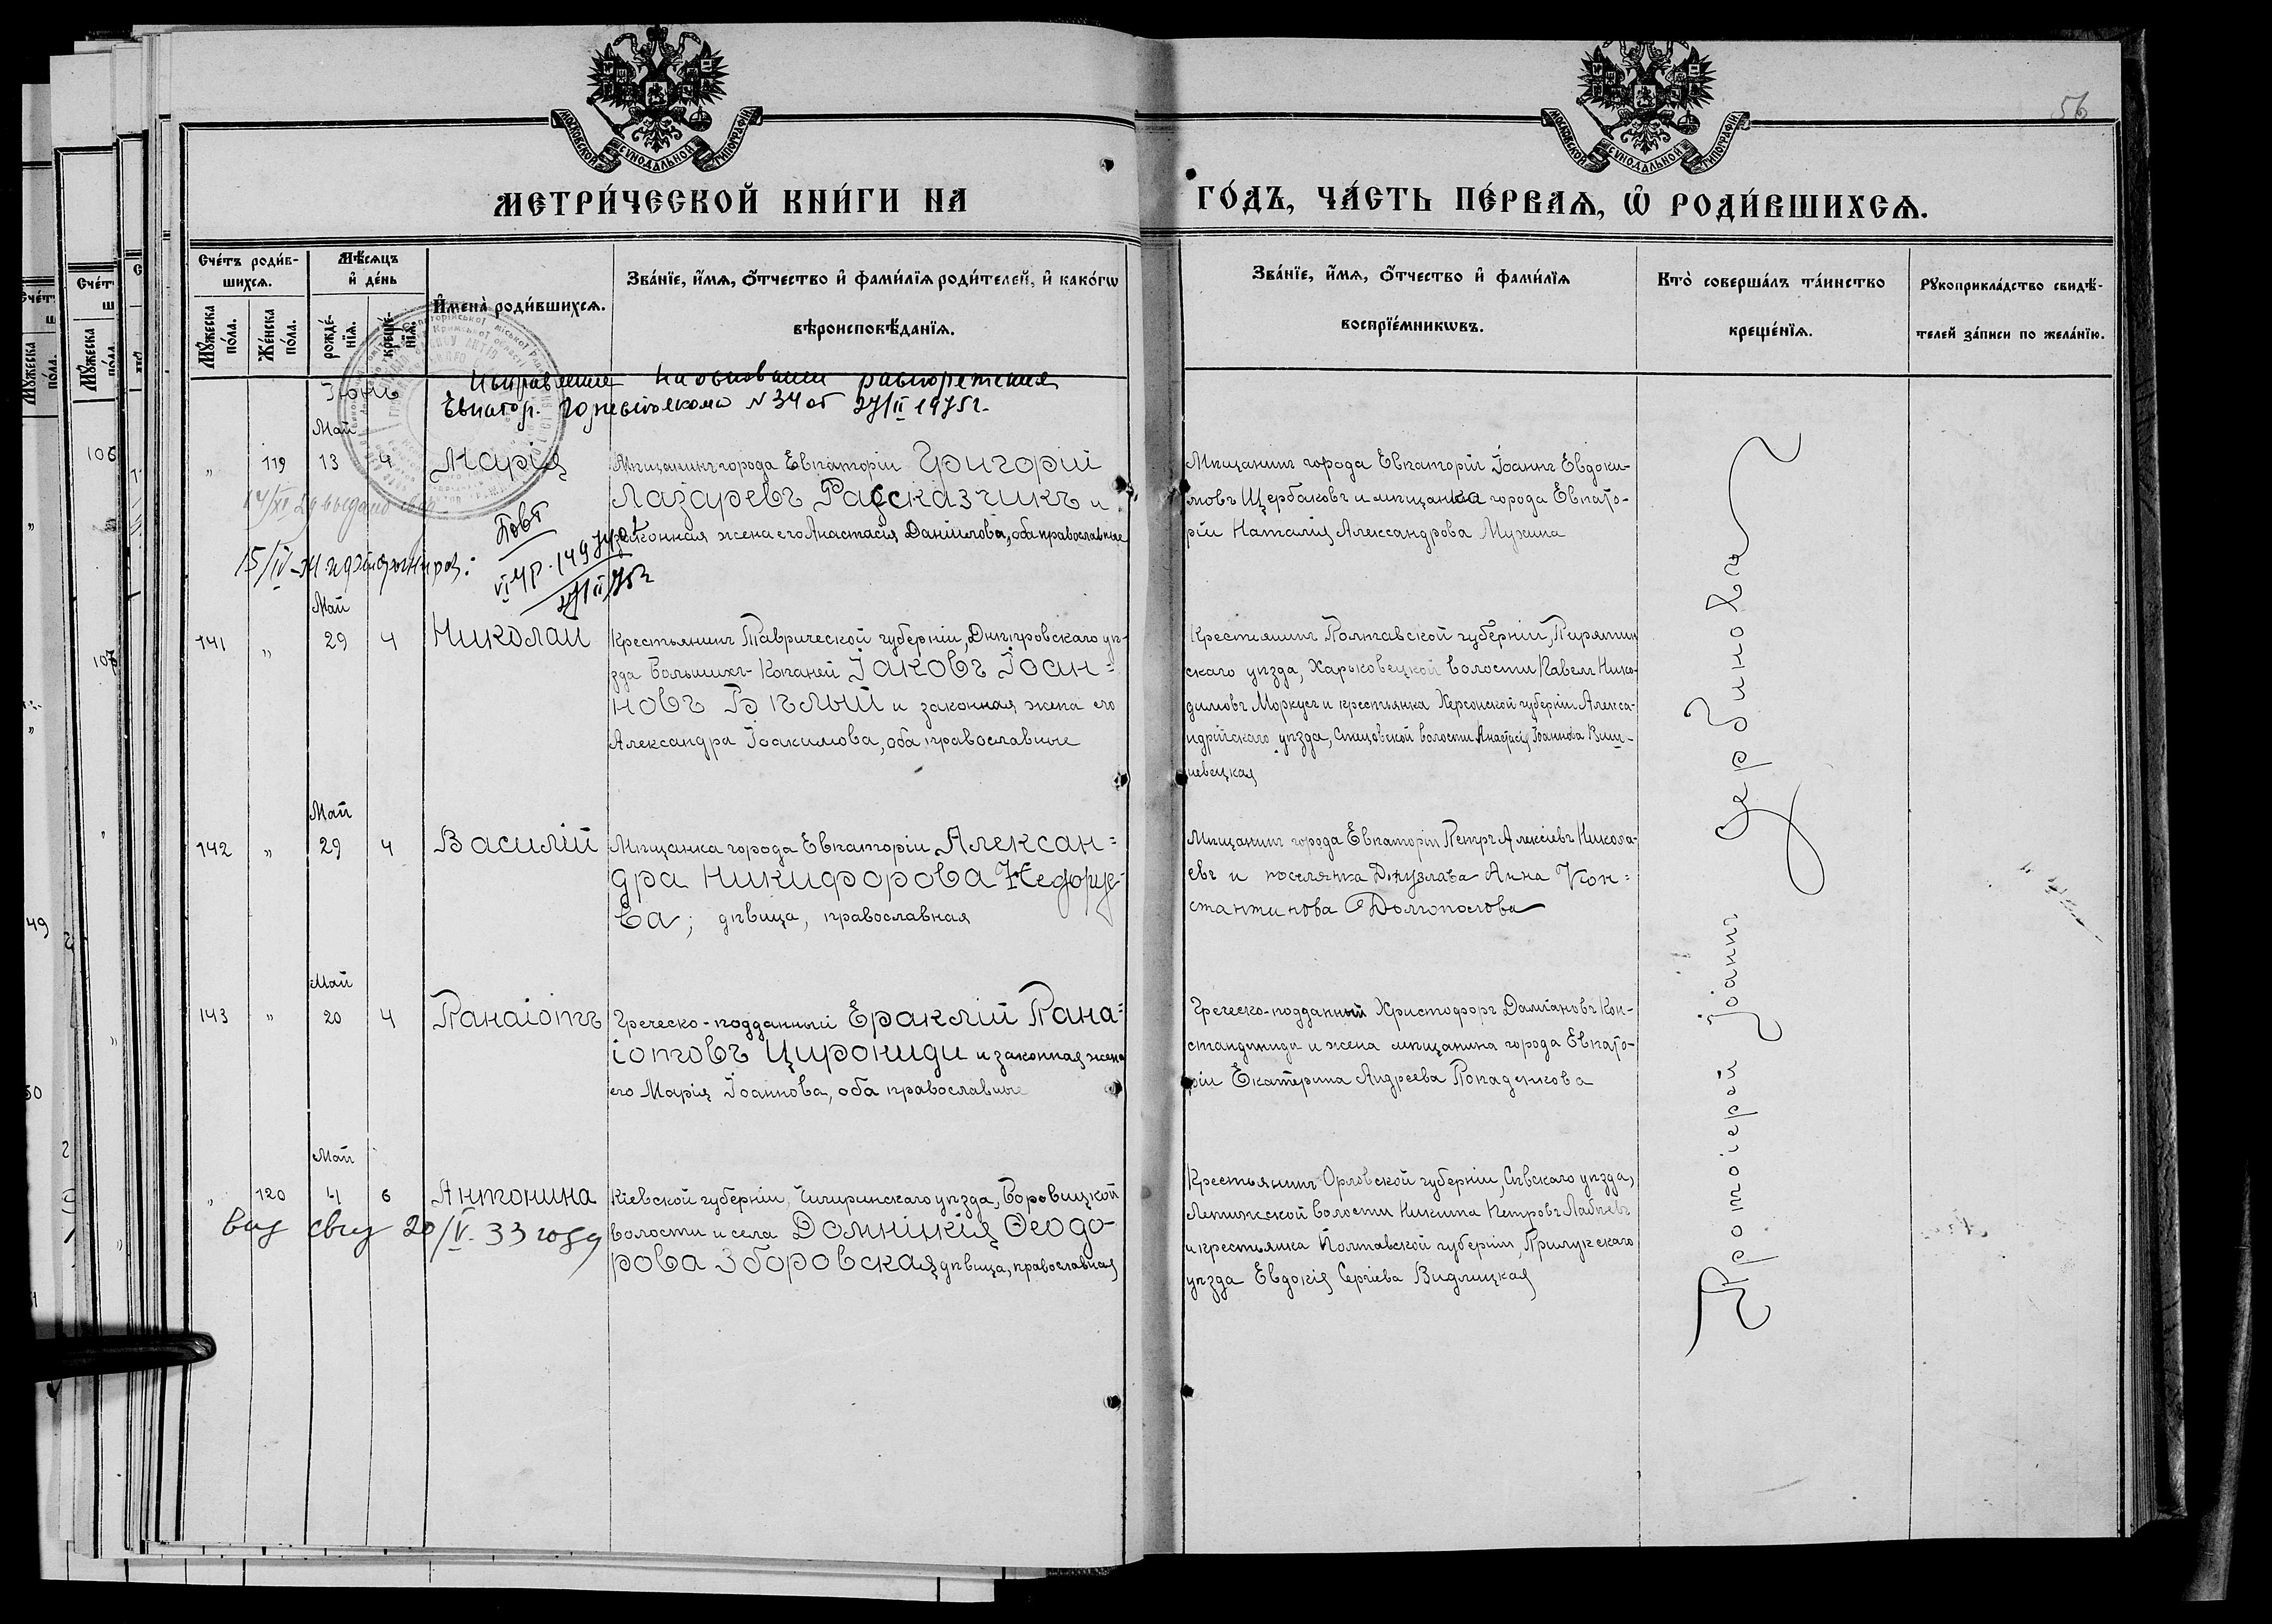 МОСКОВСКОЙ СѴНОДАЛЬНОЙ ТИПОГРАФІИ
МОСКОВСКОЙ СѴНОДАЛЬНОЙ ТИПОГРАФІИ
56
МЕТРИ́ЧЕСКОЙ КНИ́ГИ НА
ГО́ДЪ, ЧА́СТЬ ПЕ́РВАѦ, Ѡ҆ РОДИ́ВШИХСѦ.
Сче́тъ роди́в-
шихсѧ.
Мꙋ́жеска по́ла.
Же́нска по́ла.
Мѣ́сѧцъ
и҆ де́нь
рожде́-нїѧ.
креще́-нїѧ.
И҆мена̀ роди́вшихсѧ.
Зва́нїе, и҆́мѧ, ѻ҆́тчество и҆ фами́лїѧ роди́телей, и҆ како́гѡ
вѣроисповѣ́данїѧ.
Зва́нїе, и҆́мѧ, ѻ҆́тчество и҆ фами́лїѧ
воспрїе́мникѡвъ.
Кто̀ соверша́лъ та́инство
креще́нїѧ.
Рꙋкоприкла́дство свидѣ́-
телей за́писи по жела́нїю.
Іюнь
Исправление на основании распоряжения
Евпатор. Горисполкома N 34 от 27/II 1975г.
Май
" 119 13 4 Марія
Мѣщанинъ города Евпаторіи Григорій
Лазаревъ Рассказчикъ и
законная жена его Анастасія Даніилова, оба православные
Мѣщанинъ города Евпаторіи Іоаннъ Евдоки-
мовъ Щербаковъ и мѣщанка города Евпато-
ріи Наталія Александрова Мухина
14/XI 29 выдано
Повт
VI УР 149
27/II 75г
15/IV-
Май
141 " 29 4 Николай
Крестьянинъ Таврической губерніи, Днѣпровскаго уѣ-
зда Большихъ-Копаней Іаковъ Іоан-
новъ Бѣлый и законная жена его
Александра Іоакимова, оба православные
Крестьянинъ Полтавской губерніи, Пирятин
скаго уѣзда, Харьковецкой волости Павелъ Нико-
димовъ Моркусъ и крестьянка Херсонской губерніи Алекса-
ндрійскаго уѣзда, волости Анастасія Іоаннова Виш-
невецкая
Май
142 " 29 4 Василій
Мѣщанка города Евпаторіи Алексан-
дра Никифорова Недоруе-
ва; дѣвица, православная
Мѣщанинъ города Евпаторіи Петръ Алексіевъ Никола-
евъ и поселянка Донузлава Анна Кон-
стантинова Долгополова
Май
143 " 20 4 Панаіотъ
Греческо-подданный Ераклій Пана-
іотовъ Циропиди и законная жена
его Марія Іоаннова, оба православные
Греческо-подданный Христофоръ Даміановъ Кон-
стандиниди и жена мѣщанина города Евпато-
ріи Екатерина Андреева Попаденкова
Май
" 120 4 6 Антонина
Кіевской губерніи, Чигиринскаго уѣзда, Боровицкой
волости и села Домникія Ѳеодо-
рова Зборовская, дѣвица, православная
Крестьянинъ Орловской губерніи, Сѣвскаго уѣзда,
волости Никита Петровъ
и крестьянка Полтавской губерніи, Прилукскаго
уѣзда Евдокія Сергіева Видлицкая
выд свид 20/V. 33 году
Протоіерей Іоаннъ Сербиновъ